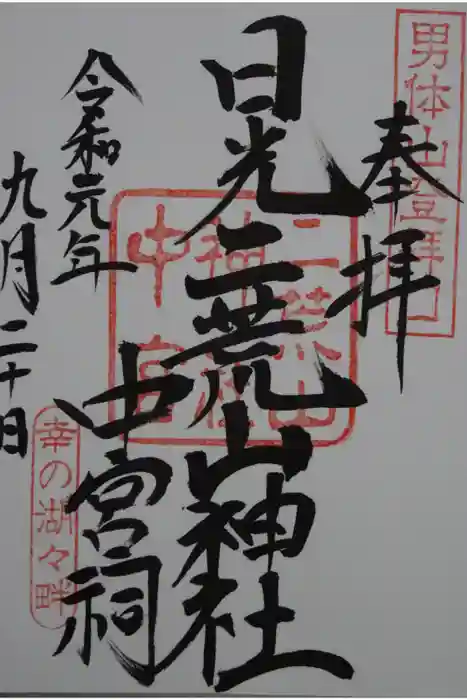 男体山登拝口
奉拝
日光二荒山神社
二荒山
神社
中宮
中宮祠
幸の湖々畔
令和元年
九月二十日